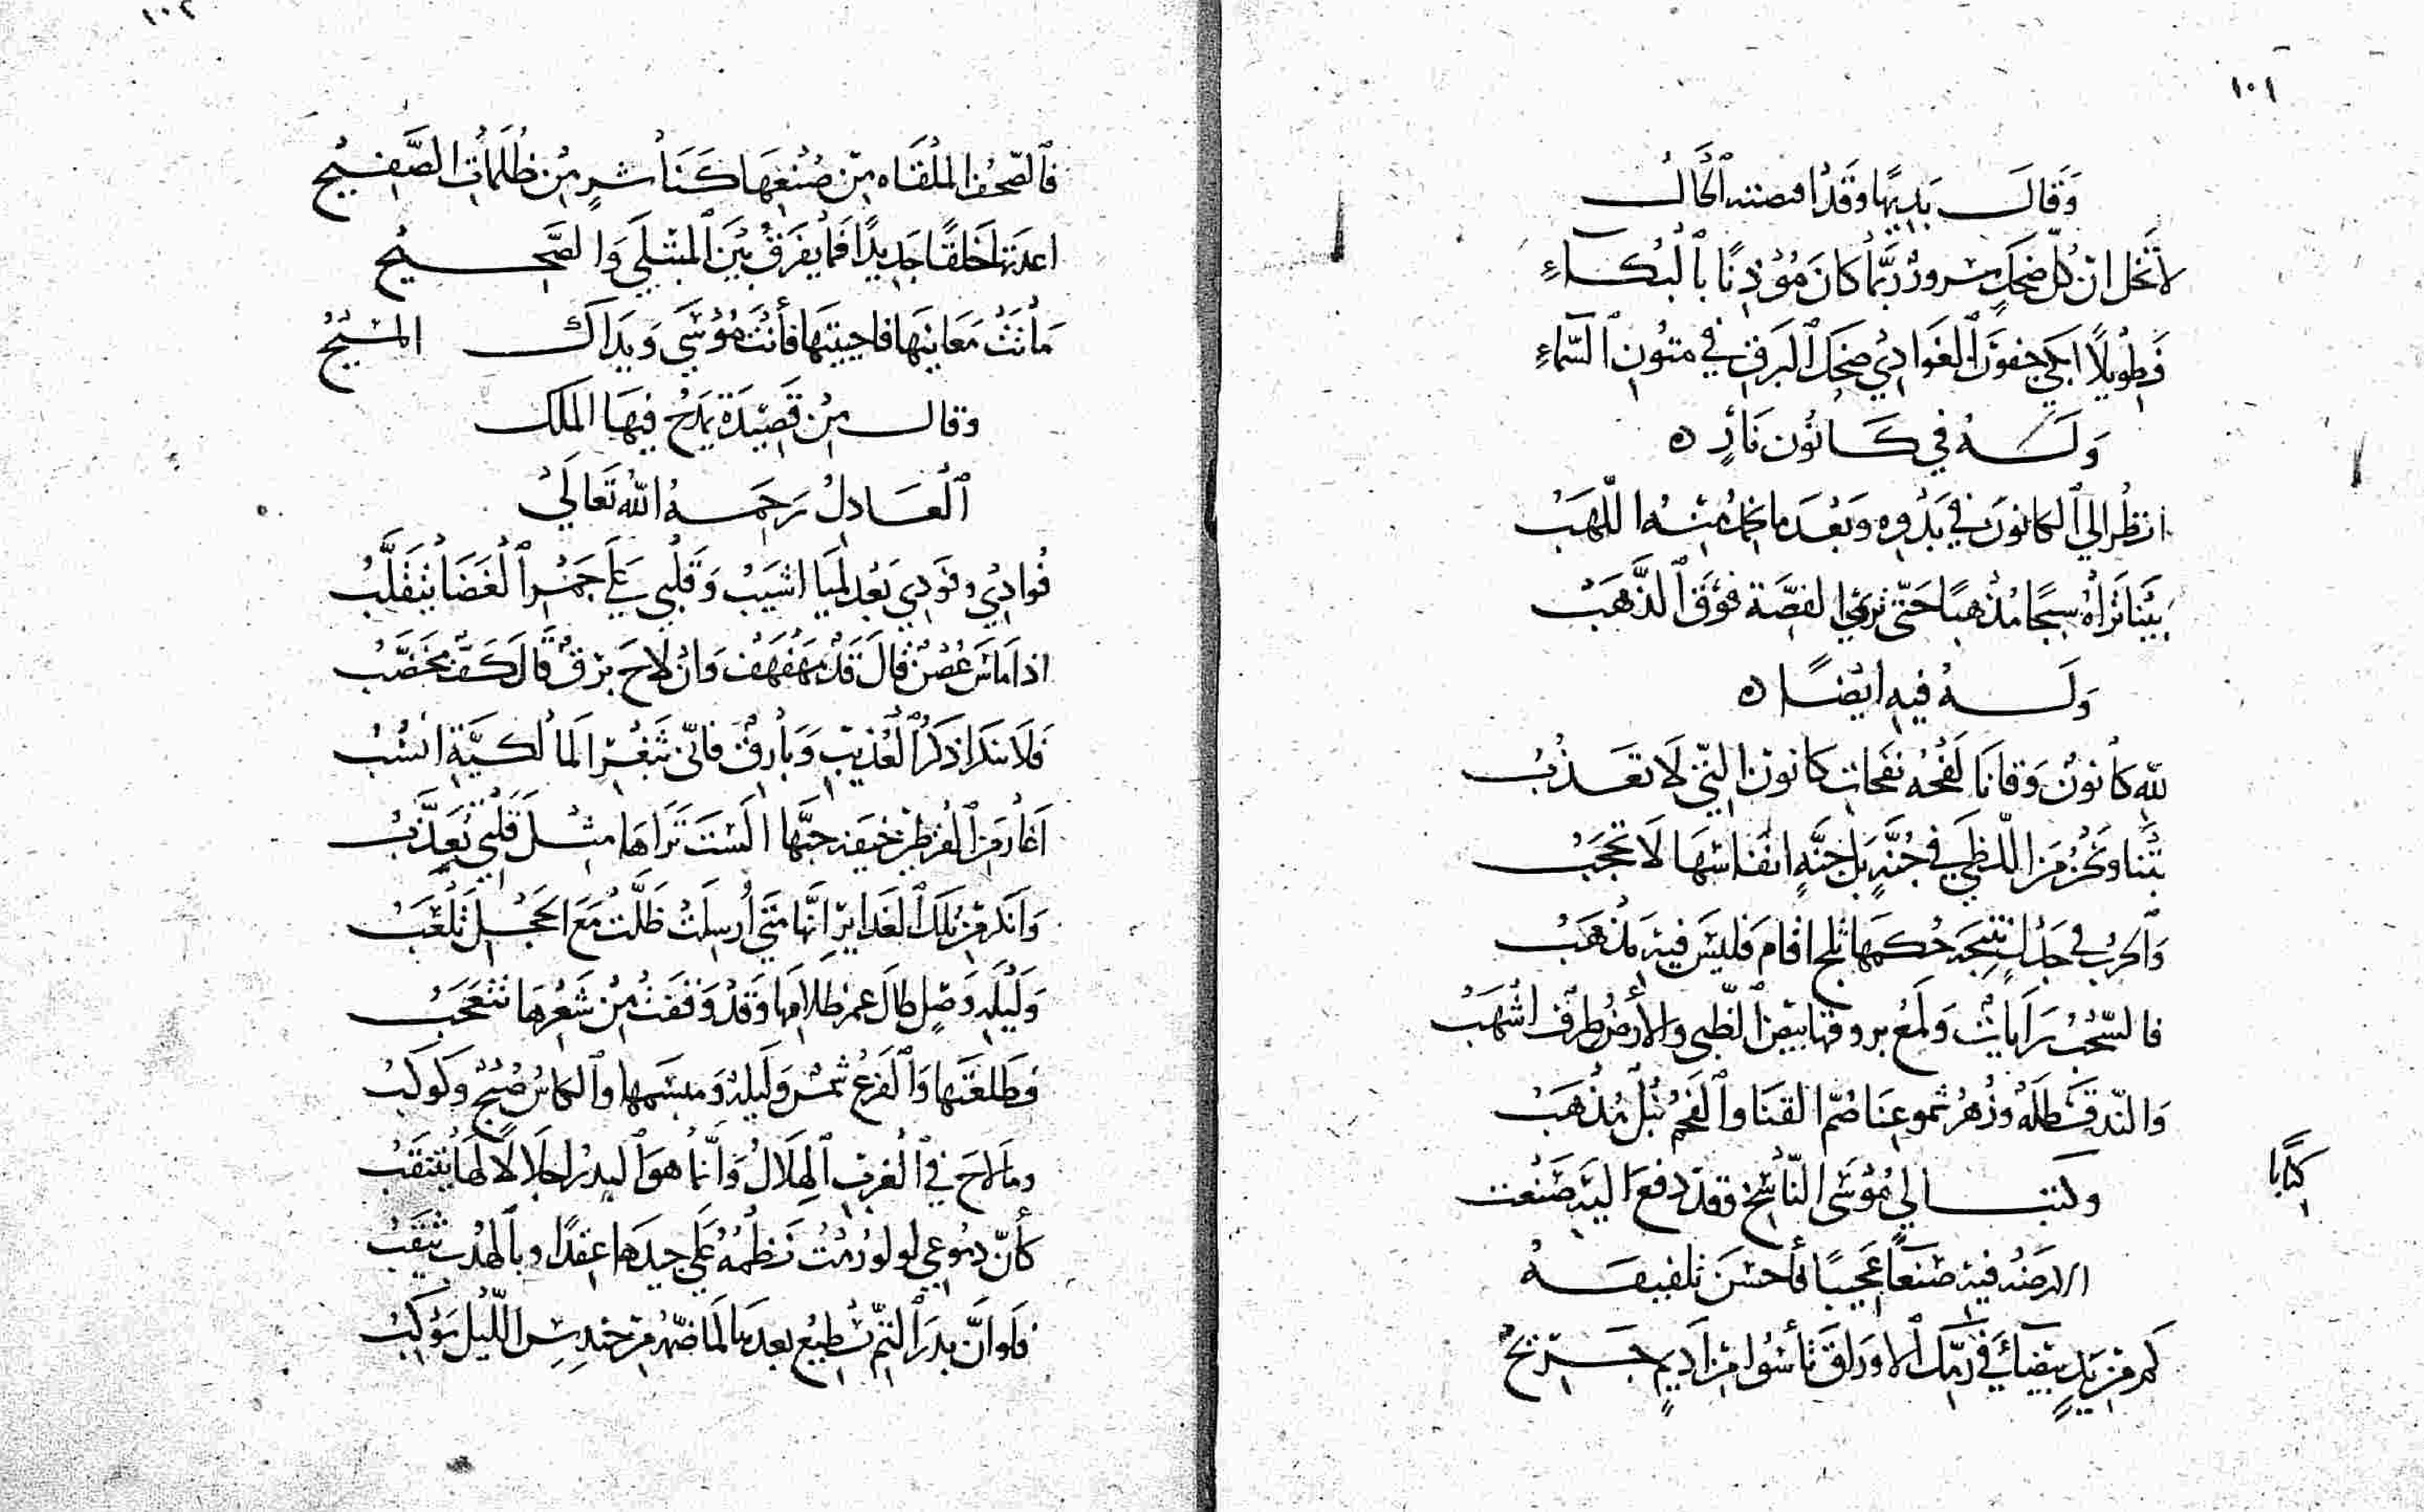 ١٠١
وَقَالَ بَدِيهًا وَقَدْ اقتضته الْحَالُ
لا تَخَل انّ كُلّ ضحكٍ سرورٌ رُبَّما كانَ مُؤْذِنًا بالْبُكَاءِ
فَطويلًا ابكي جفونَ الغَوادِي ضحكُ البَرقِ في متونِ السّماءِ
وَلَهُ في كَانُون نَارٍ ه
انظُر الي الكانونَ في بَدْوِه وَبَعْدَ ما خمد مِنْهُ اللّهَبْ
بَيْنَا تَراهُ سبجًا مُذْهبًا حَتّى تري الفضّة فوْقَ الذَّهَبْ
وَلَهُ فيهِ ايْضًا ه
للهِ كانونٌ وَقانَا لَفْحُه نفحاتِ كانونَ التي لا تعَذُبُ
بِتْنا ونَحْنُ مِنَ اللّظي في جُنَّةٍ بَل جَنَّةٍ انفاسُهَا لا تحجَبُ
وَالحربُ في حَالٍ نتيجَة حُكمهَا ثلج اقام فليْسَ فيه مَذهَبُ
فالسّحْبُ رَايَاتٌ وَلَمْعُ بروقهَا بيض الظّبي والأرضُ طِرف اشْهَبُ
وَالنّد قَسْطَلَهُ وَزُهرُ شموعِنَا صُمّ القنَا والفَحْمُ نُبْلٌ مُذْهَبُ
وكتب الي مُوْسَى النّاسِخ وقد دفع اليه
كتابًا
فيه صنعًا عَجيبًا فأحسَنَ تلفيقهُ
كم مِن يَدٍ بيْضَائَ في رمّك الاورَاقَ تأسُوا مِن اديمٍ جَرِيحْ
١٠٢
فالصّحُفُ المُلْقَاه مِن صُنْعِهَا كَنَاشرٍ مِن ظُلمَاتِ الصَّفِيحْ
اعدتها خَلقًا جَدِيدًا فَما يفرَقُ بَيْنَ المبْتلَي وَالصَّحِيحْ
مَاتَتْ مَعَانيهَا فاحييتَهَا فأنتَ مُوْسَي وَيدَاكَ المسِيحْ
وقال مِن قَصِيدَة يَمْدَحُ فيهَا المَلك
الْعَادِلُ رَحِمَهُ اللهُ تَعَالَي
فُوادِيْ وفَودِي بَعْد لميا اشيَبُ وَقَلْبي عَلَى جَمْرِ الْغَضَا يَتَقَلَّبُ
اذا مَاسَ غُصْنٌ قَالَ قَدٌّ مهَفْهَفٌ وَانْ لاحَ برْقٌ قالَ كَفٌّ مخَضَّبُ
فَلا تنكرا ذكرَ الْعُذيبِ وَبارِقٍ فانّي بِثَغْرِ المالكيَّةِ انْسُبُ
اغارُ مِن القُرطِ خيفَة حبّها الَسْتَ تَرَاهَا مثلَ قَلْبي تُعَذَّبُ
وَانكر مِن تلك الغَدايرِ انّها مَتَي أُرسِلَتْ ظَلَّتْ مَعَ الحجل تَلْعَبُ
وَليْلَه وَصْلٍ طَالَ عمر ظلامِهَا وَقَدْ وَقَفَتْ مِن شَعْرِهَا تتعَجّبُ
فطَلعَتهَا وَالْفَرْعُ شمسٌ وَلَيلةٌ وَمبسَمها والكاسُ صُبْحٌ وَكوكَبُ
وما لاحَ في الْغربِ الْهِلالُ وَانّما هوَ البدرُ اجلالا لَهَا يتنَقَّبُ
كأنّ دمُوعي لولو رُمْتُ نَظْمَهُ عَلَي جيدهَا عِقدًا وبالهُدْبِ يثقَبُ
فلَو انّ بدرَ التّمِّ يسْطيع بعدها لَمَا ضمّه مِن حندِسِ اللّيلِ مَوْكِبُ